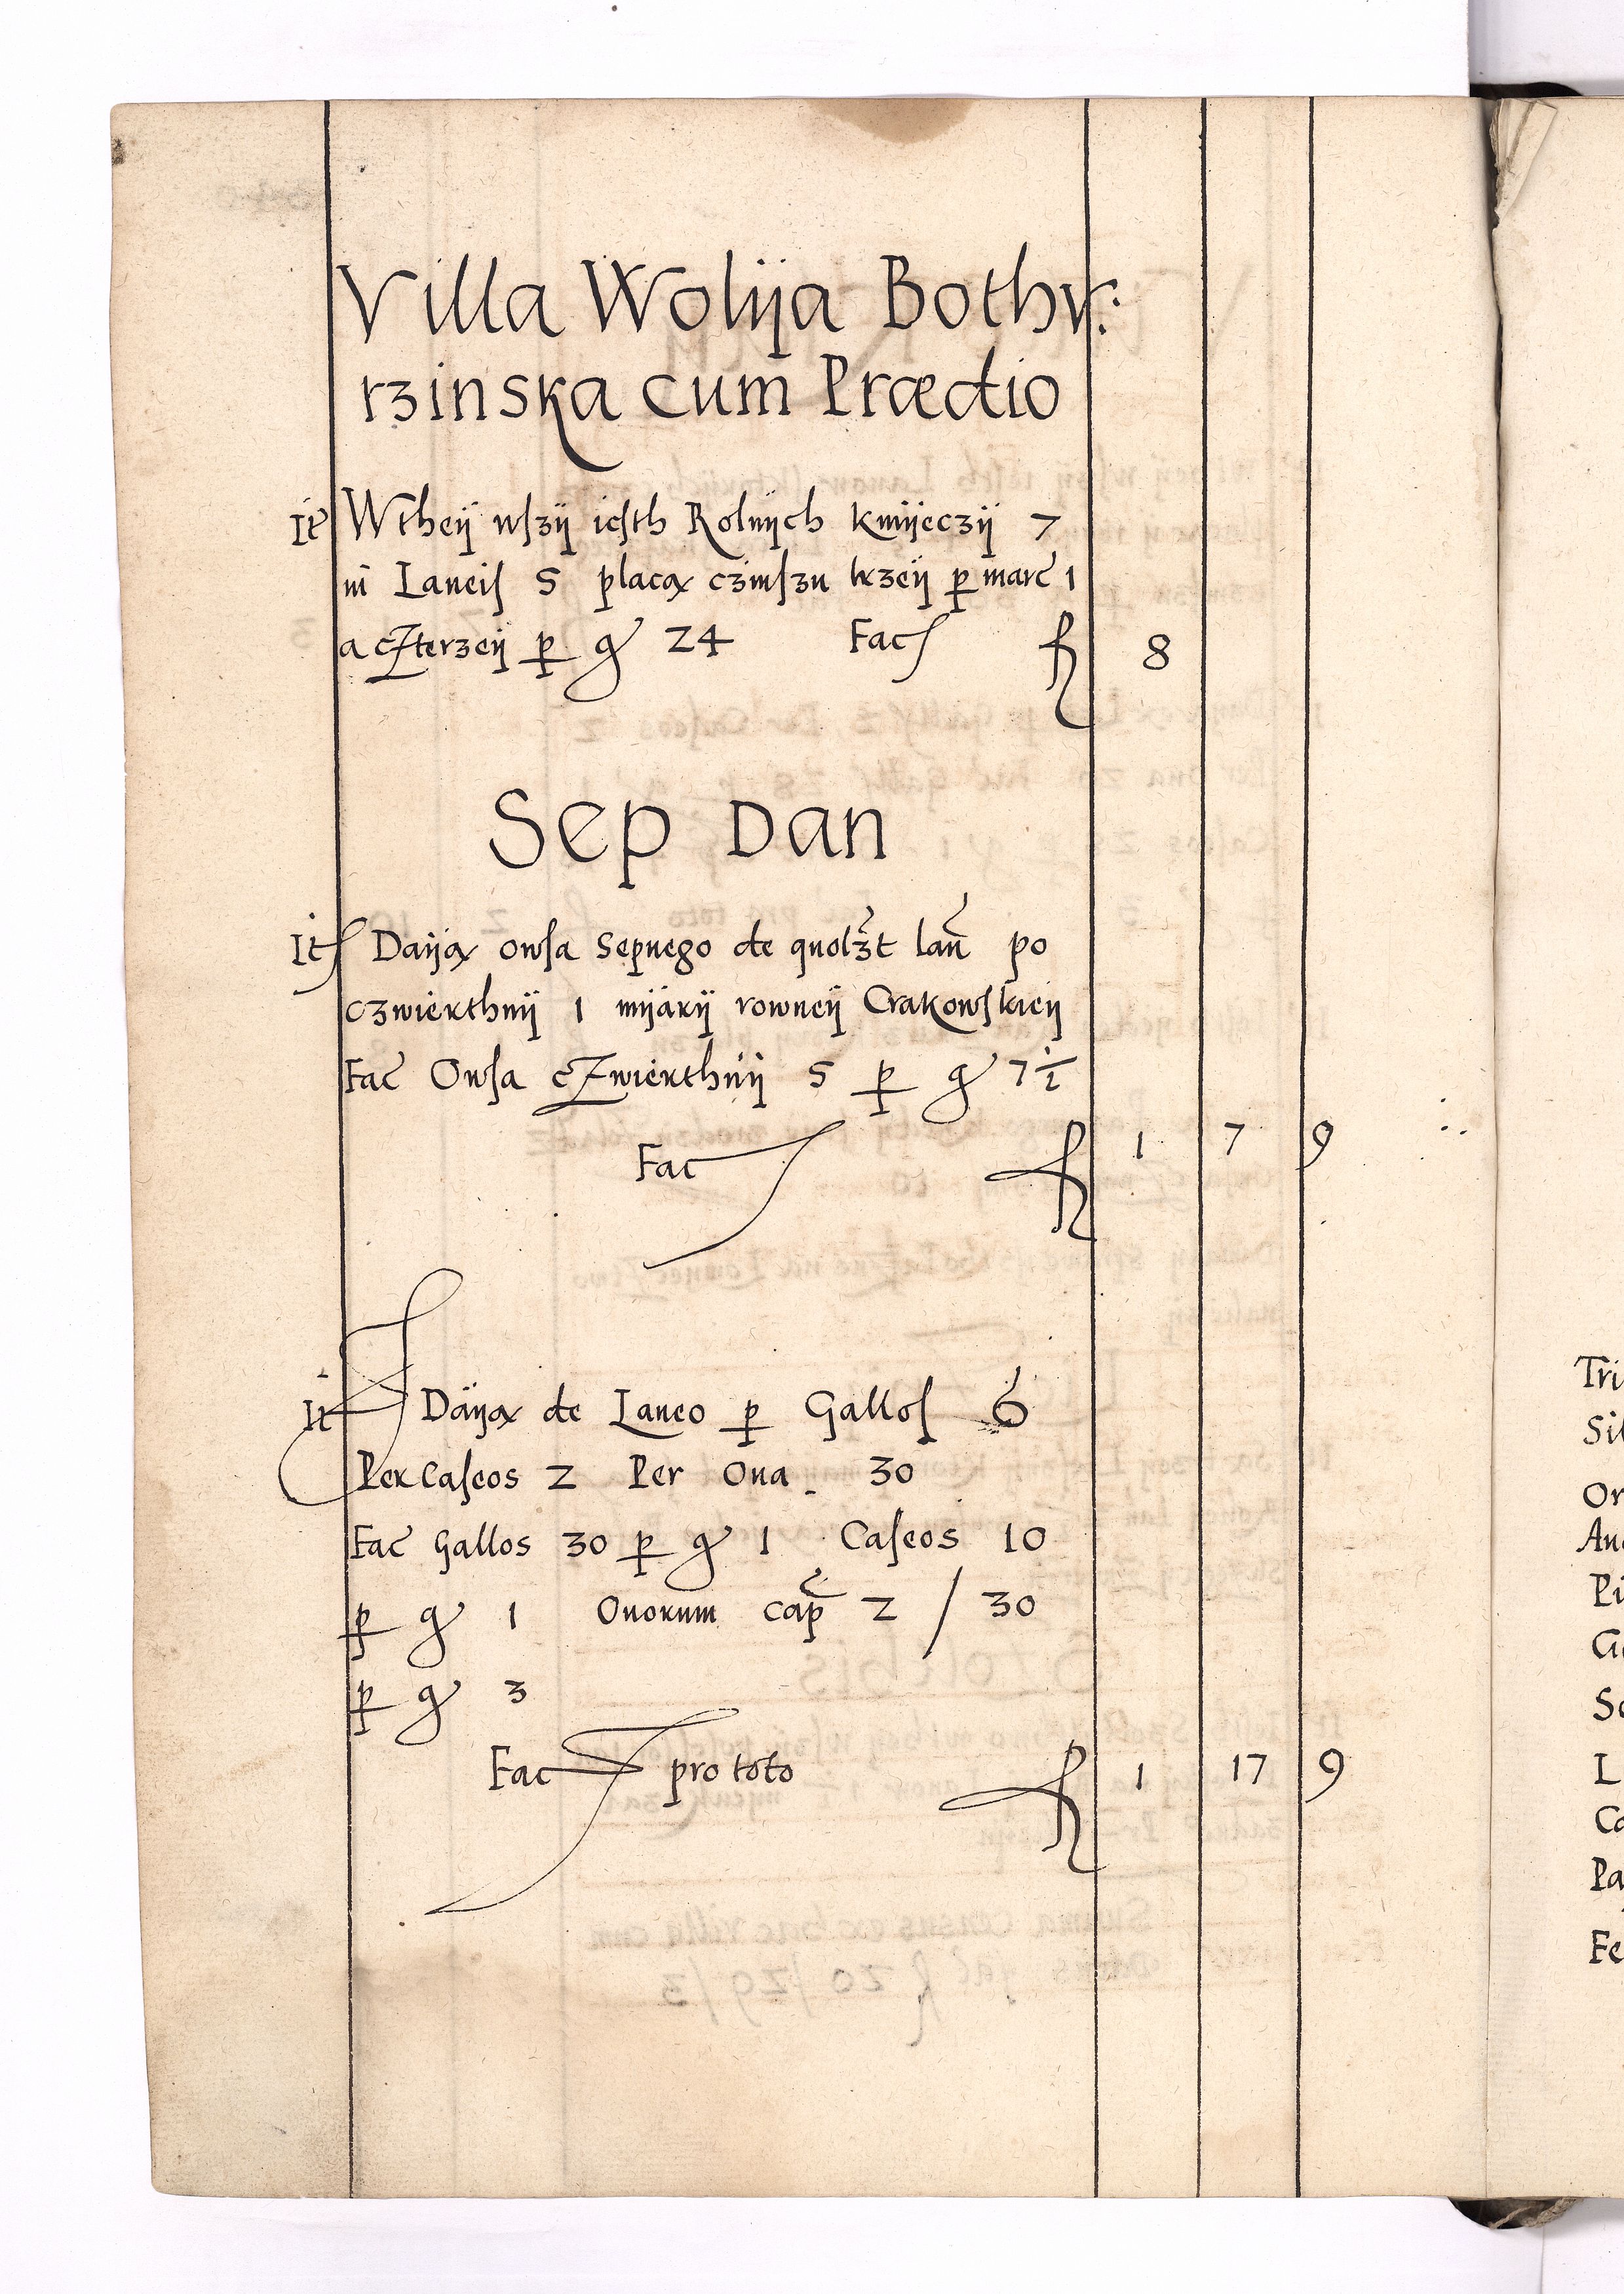 Villa Wolija Bothv:
rzinska cum Prædio
It Wtheij wſzij ieſth Rolnijch Kmijeczij 7
in Laneiſ 5 placą czinſzu trzeij p marc 1
a czterzeij p gͬ 24 Fac fl 8
Sep Dan
It Daiją owſa Sepnego de quolzt lan po
czwierthnij 1 mijarij rowneij Crakowſkieij
Fac Owſa czwierthnij 5 p gͬ 7½
Fac fl 1 7 9
It Daiją de Laneo p Galloſ 6
Per Caſeos 2 Per Oua 30
Fac Gallos 30 p gͬ 1 Caſeos 10
p gͬ 1 Ouorum cap 2 / 30
p gͬ 3
Fac pro toto fl 1 17 9
Tri
Sil
Or
And
Pi
L
Pa
Fe